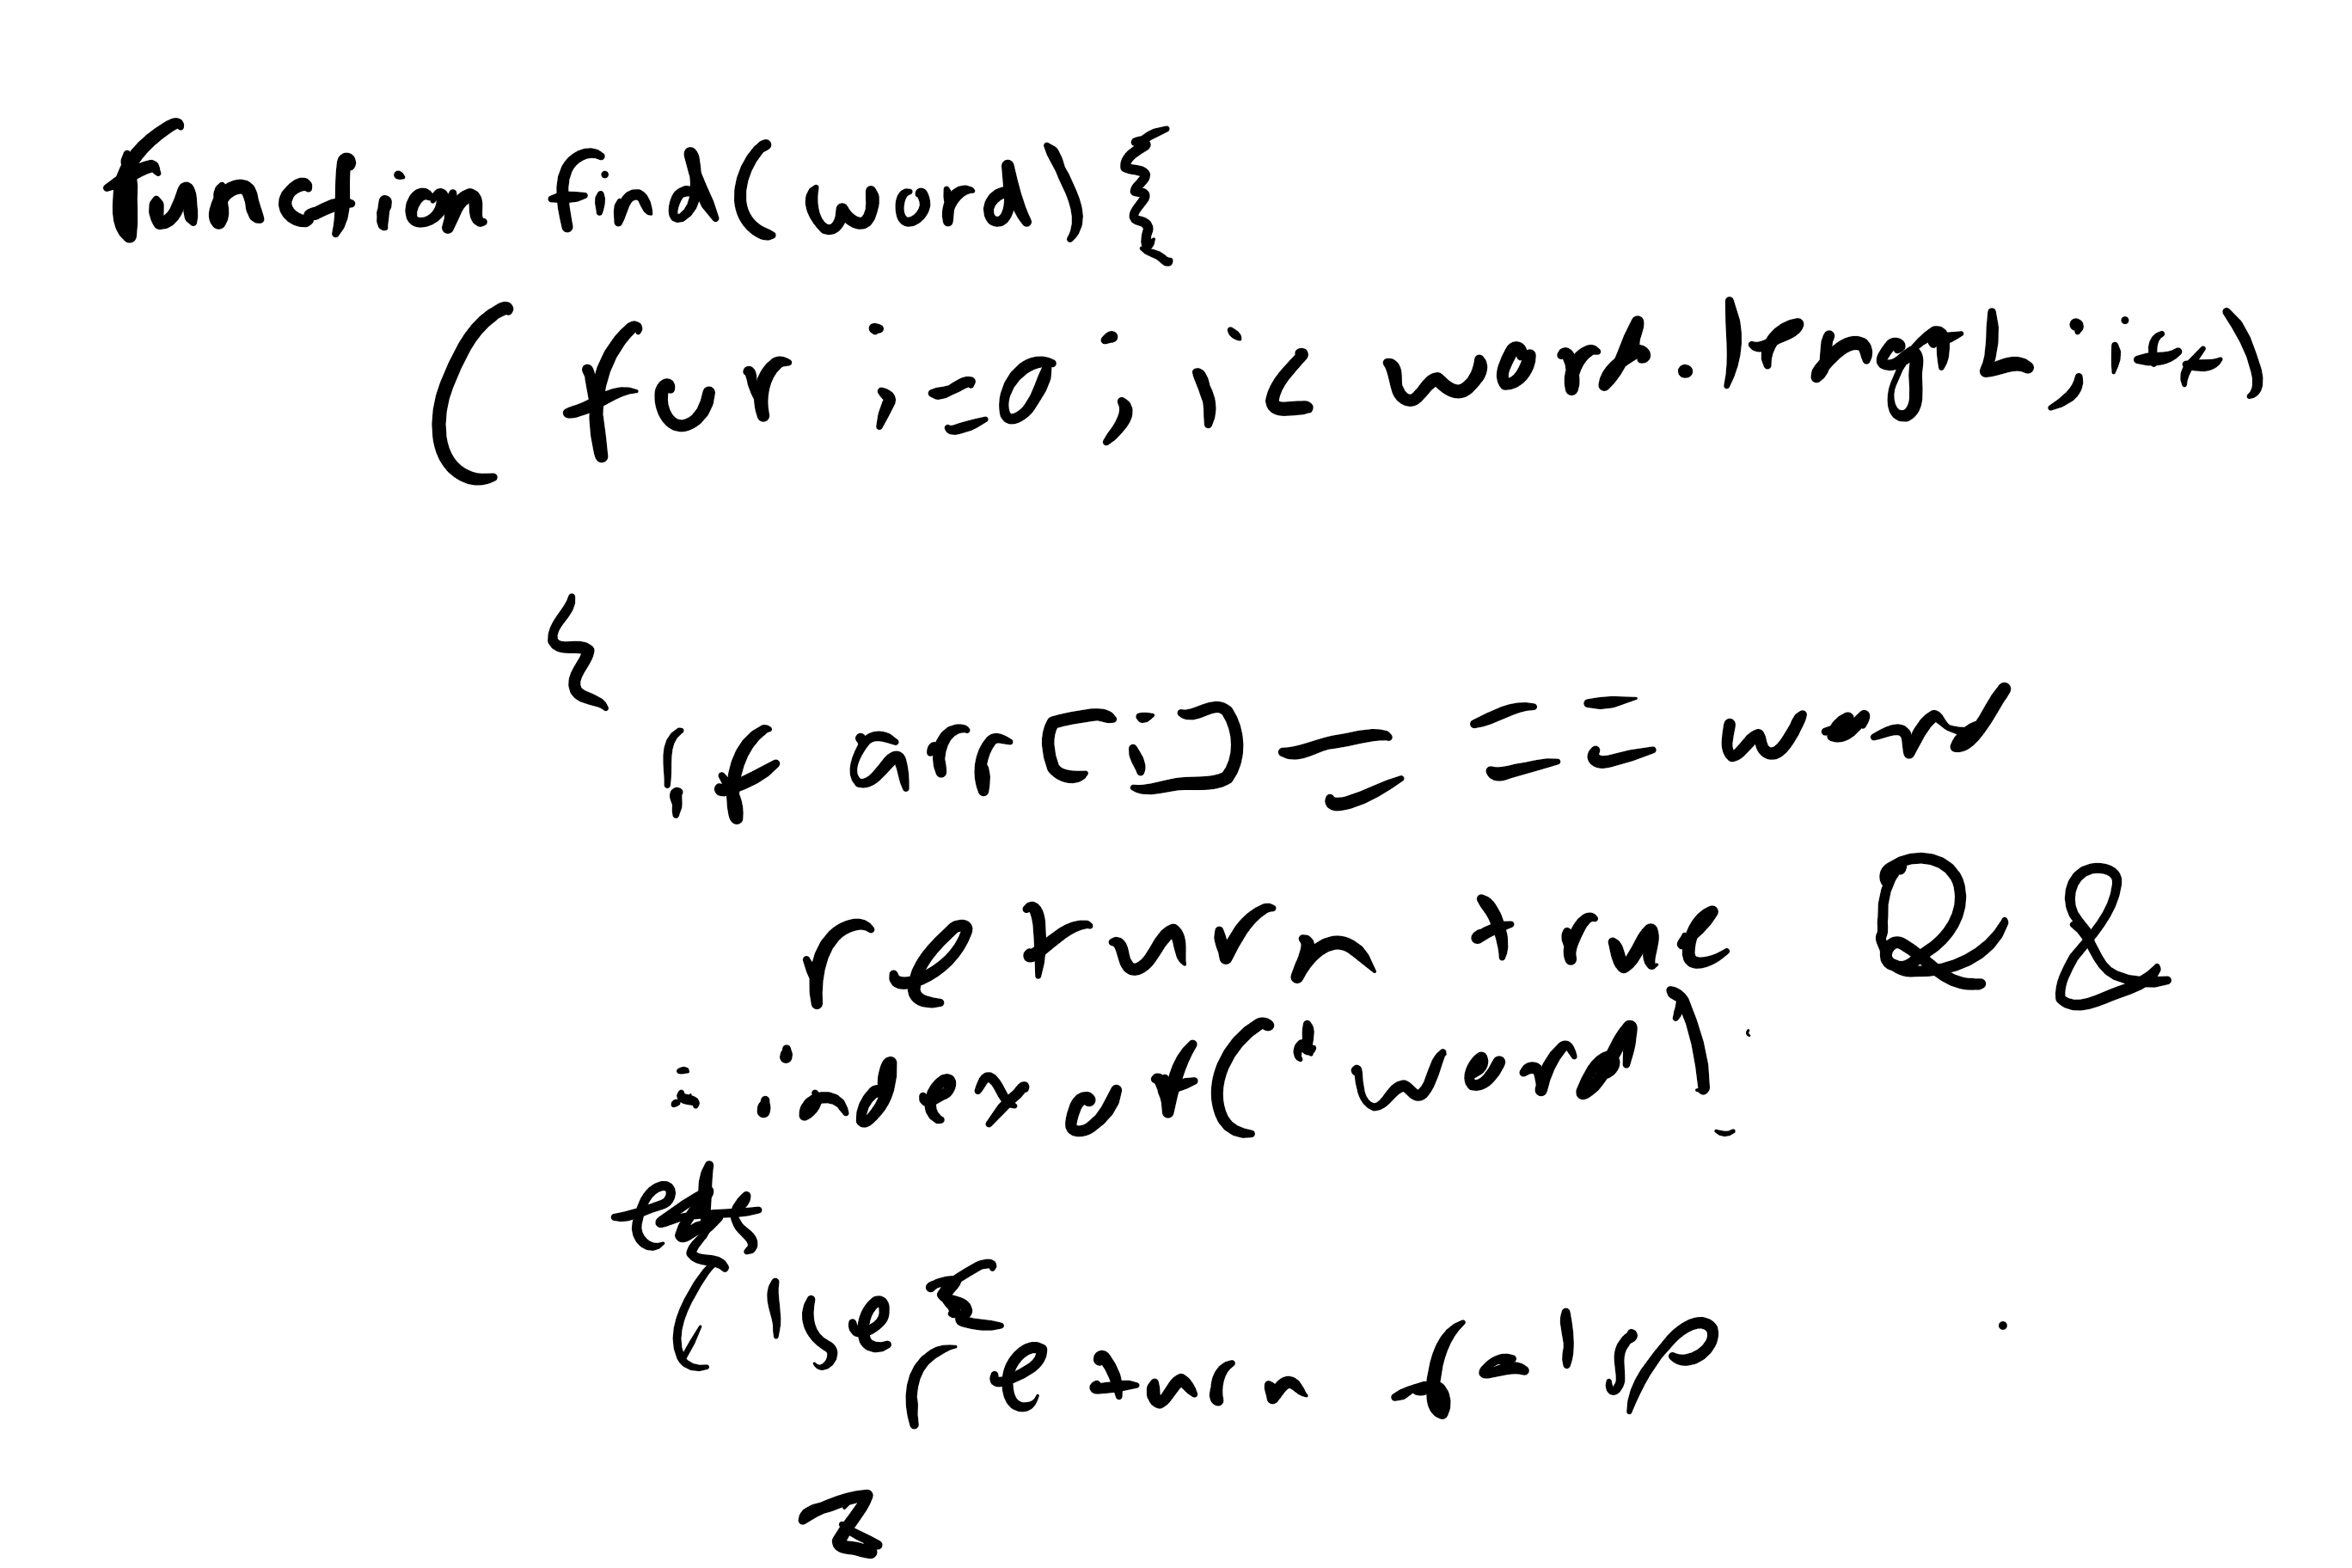 function find(word){
(for i=0; i< word.length; i++)
{
if arr[i] === word
return true &&
index of("word)
else {
return
}